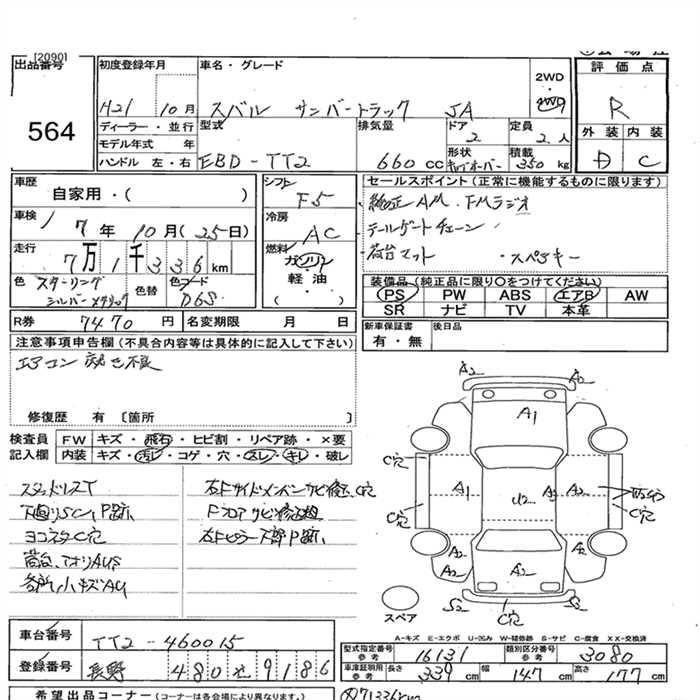 [2090]
出品番号
564
初度登録年月
H21 10月
車名・グレード
スバル サンバートラック JA
2WD
・
4WD
評価点
R
外装 内装
D C
ディーラー・並行
モデル年式 年
ハンドル 左・右
型式
EBD-TT2
排気量
660 cc
ドア
2
定員
2人
形状
積載
350 kg
車歴
自家用・( )
車検
7年 10月(25日)
走行
7万1千336km
色
スターリング
シルバーメタリック
色替
色コード
D6S
シフト
F5
冷房
AC
燃料
ガソリン
軽油
( )
セールスポイント(正常に機能するものに限ります)
純正AM.FMラジオ
テールゲートチェーン
荷台マット ・スペアキー
装備品(純正品に限り○をつけてください)
PS PW ABS エアB AW
SR ナビ TV 本革
R券 7470円
名変期限 月 日
新車保証書
有・無
後日品
注意事項申告欄(不具合内容等は具体的に記入して下さい)
エアコン 効き不良
修復歴 有 〔箇所 〕
検査員
記入欄
FW キズ・飛石・ヒビ割・リペア跡・×要
内装 キズ・汚レ・コゲ・穴・スレ・キレ・破レ
スタッドレスT
下廻りSC、P跡
ヨコネタC穴
荷台、アオリAUS
各所小キズAU
右Fサイドメンバーサビ修正、C穴
右Fピラー下部P跡
A2
A2
A1
C穴
A1
U2
A3
A2
C穴
C穴
A2
A2
A2
A2
S2
S2
C穴
スペア
A-キズ E-エクボ U-凹み W-補修跡 S-サビ C-腐食 XX-交換済
車台番号
TT2-460015
登録番号
長野 480 そ 9186
型式指定番号
参考
16131
類別区分番号
参考
3080
車庫証明用
参考
長さ 339 cm
幅 147 cm
高さ 177 cm
希望出品コーナー(コーナーは各会場で異なります)
71336km